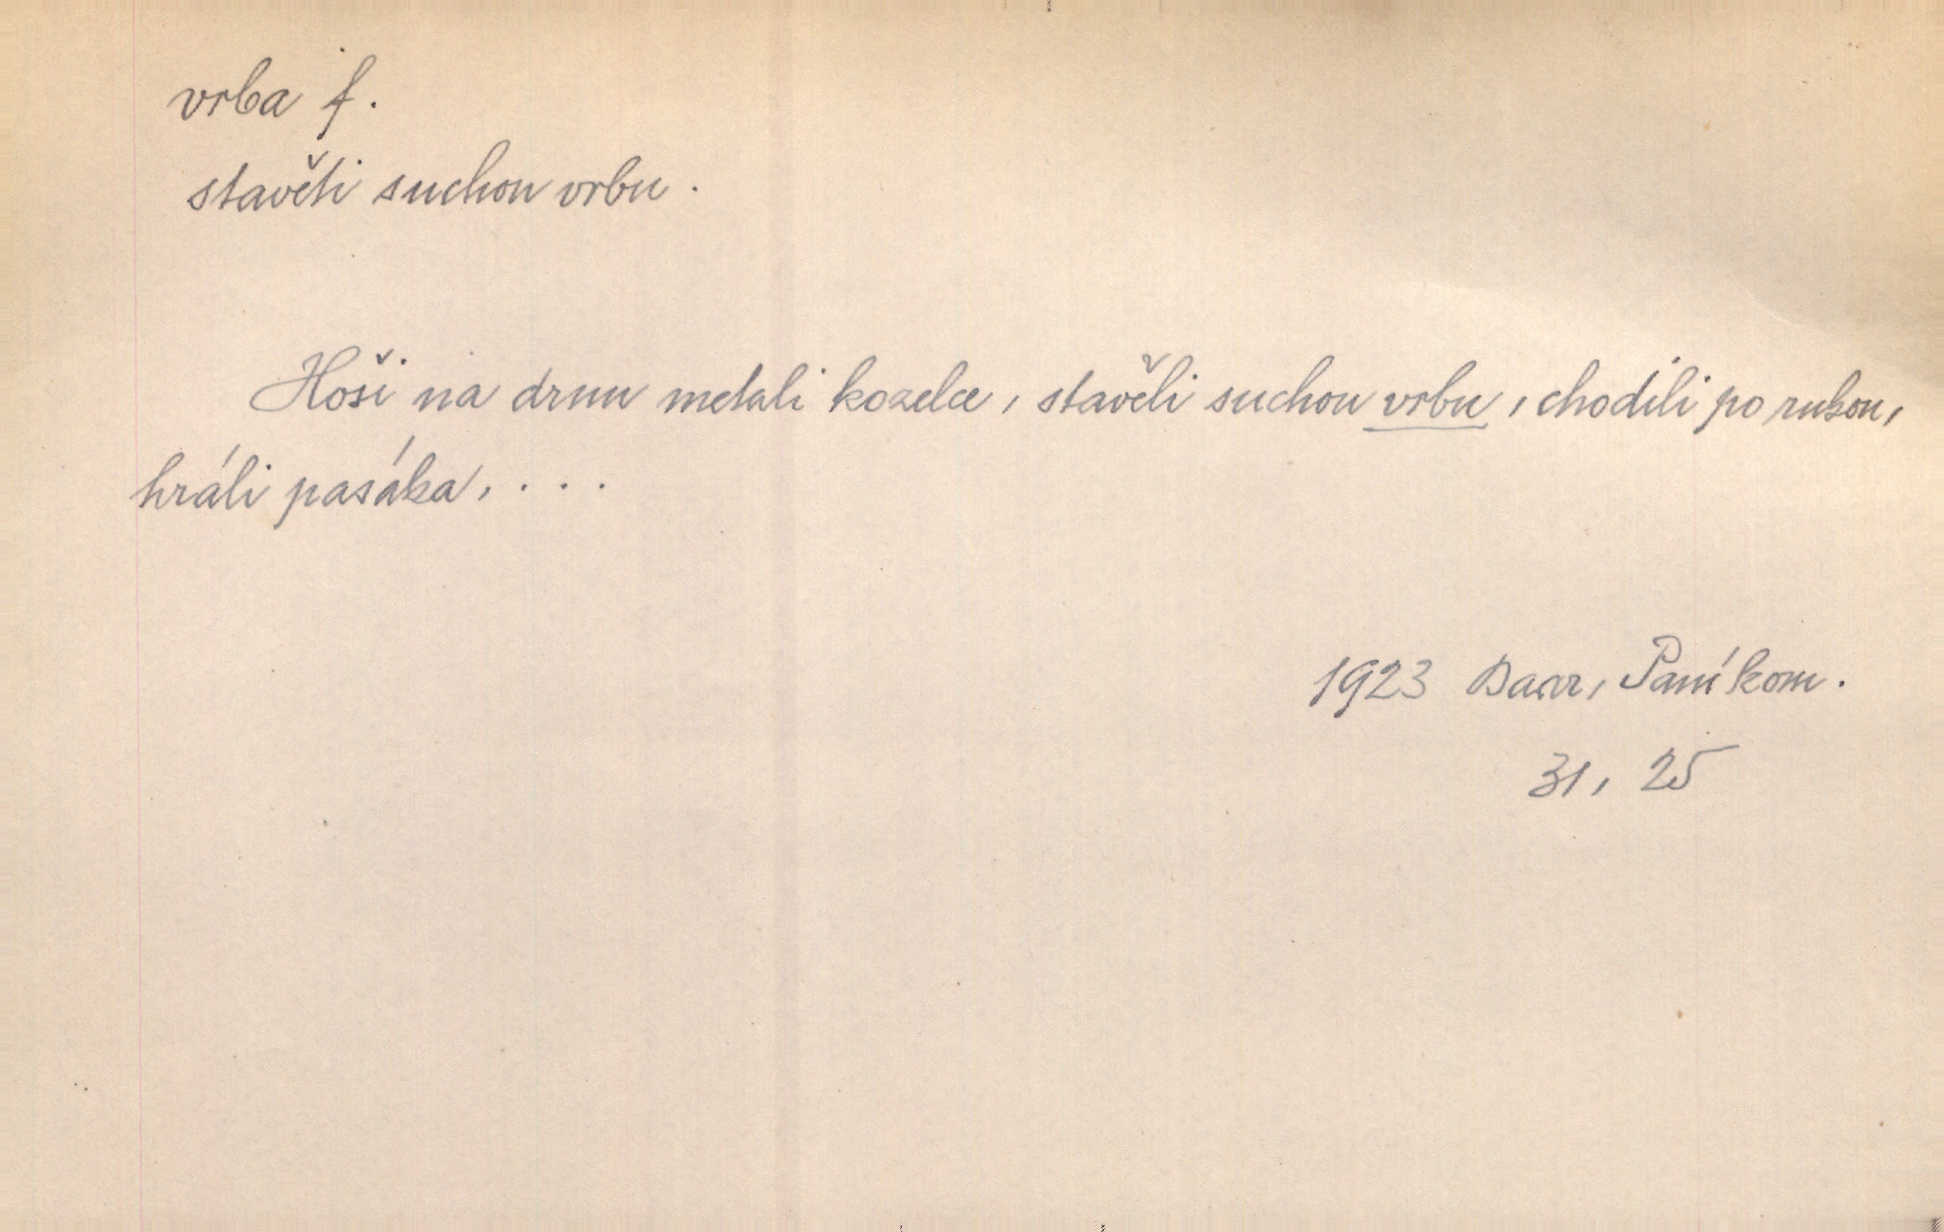 vrba f.
stavěti suchou vrbu.
Hoši na drnu metali kozelce, stavěli suchou vrbu, chodili po rukou,
hráli pasáka, . . .
1923 Baar, Paní kom.
31, 25